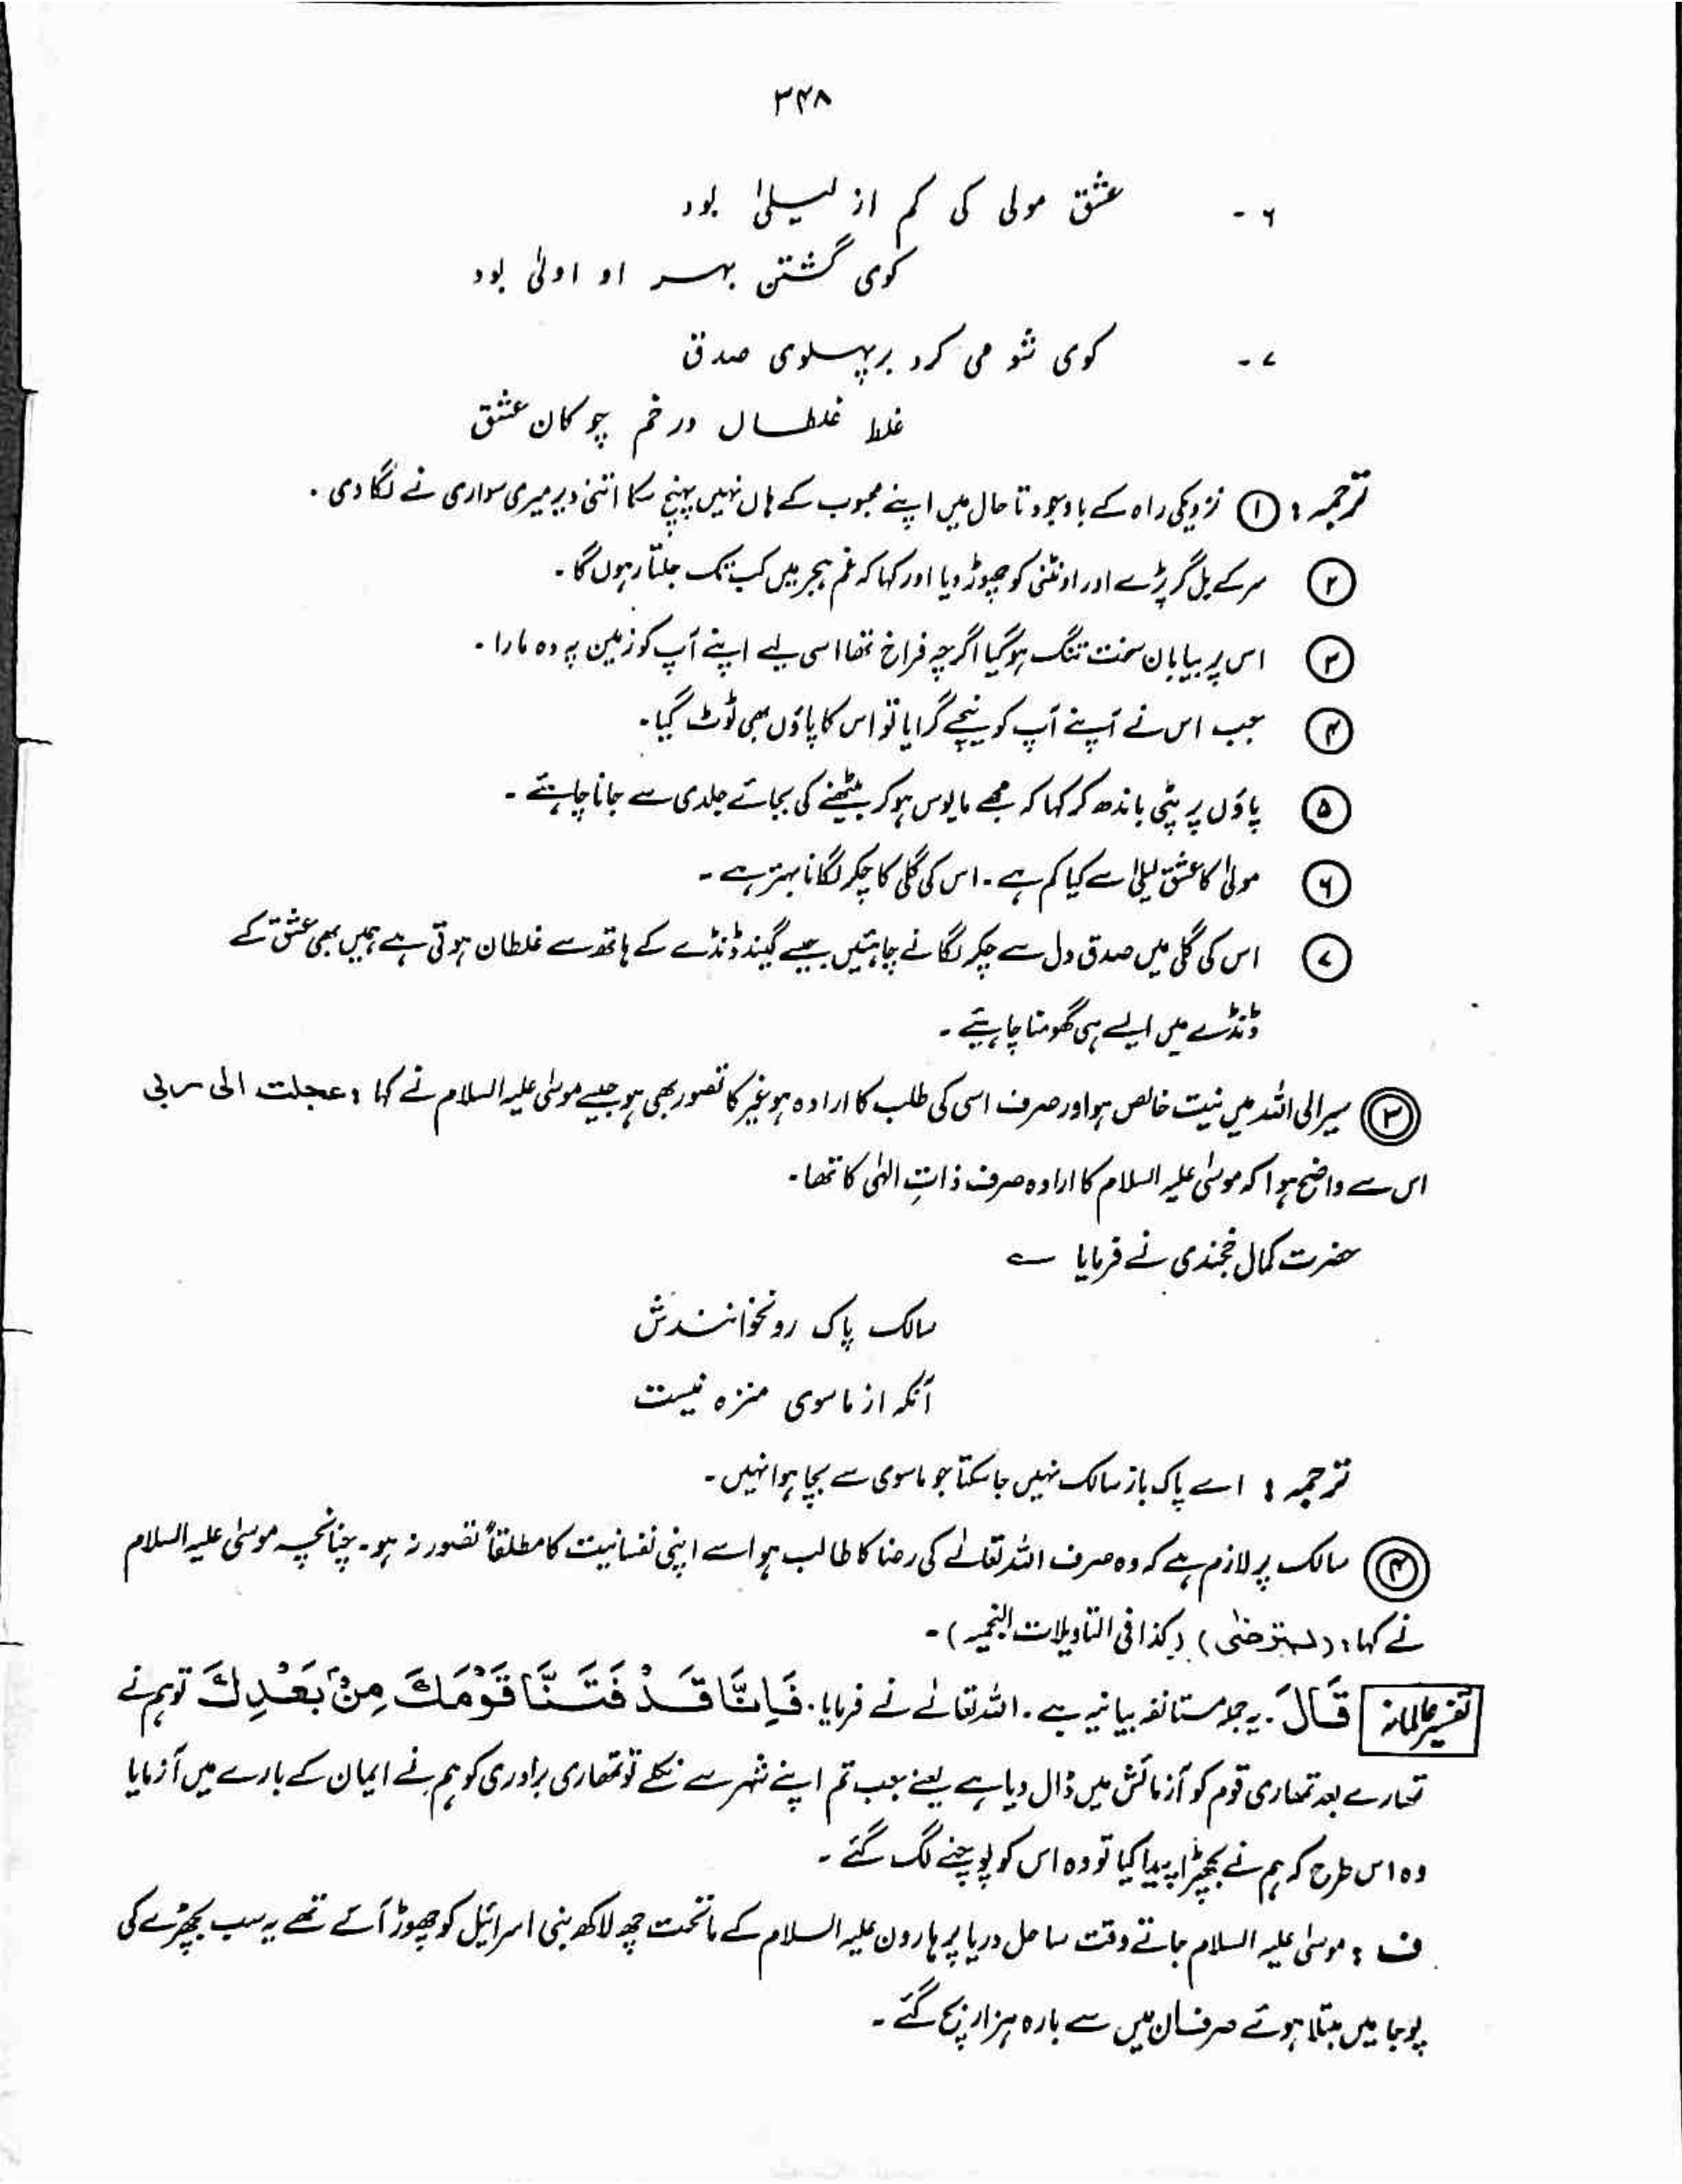 ۳۴۸
۶- عشق مولی کی کم از لیلیٰ بود
کوی گشتن بہر او اولیٰ بود
۷- کوی شو می کرد بر پہلوی صدق
غلط غلطاں در خم چوکان عشق
ترجمہ: ① نزدیکی راہ کے باوجود تا حال میں اپنے محبوب کے ہاں نہیں پہنچ سکا اتنی دیر میری سواری نے لگا دی۔
② سر کے بل گر پڑے اور اونٹنی کو چھوڑ دیا اور کہا کہ غم ہجر میں کب تک جلتا رہوں گا۔
③ اس پر بیابان سخت تنگ ہو گیا اگرچہ فراخ تھا اسی لیے اپنے آپ کو زمین پہ دہ مارا۔
④ جب اس نے اپنے آپ کو نیچے گرایا تو اس کا پاؤں بھی ٹوٹ گیا۔
⑤ پاؤں پر پٹی باندھ کر کہا کہ مجھے مایوس ہو کر بیٹھنے کی بجائے جلدی سے جانا چاہئے۔
⑥ مولیٰ کا عشق لیلیٰ سے کیا کم ہے۔ اس کی گلی کا چکر لگانا بہتر ہے۔
⑦ اس کی گلی میں صدق دل سے چکر لگانے چاہئیں جیسے گیند ڈنڈے کے ہاتھ سے غلطان ہوتی ہے ہمیں بھی عشق کے
ڈنڈے میں ایسے ہی گھومنا چاہیئے۔
③ سیر الی اللہ میں نیت خالص ہو اور صرف اسی کی طلب کا ارادہ ہو غیر کا تصور بھی ہو جیسے موسیٰ علیہ السلام نے کہا: عجلت الی ربی
اس سے واضح ہوا کہ موسیٰ علیہ السلام کا ارادہ صرف ذاتِ الہٰی کا تھا۔
حضرت کمال خجندی نے فرمایا ؎
سالک پاک رو نخوانندش
آنکہ از ماسوی منزہ نیست
ترجمہ: اسے پاک باز سالک نہیں جا سکتا جو ماسوی سے بچا ہوا نہیں۔
④ سالک پر لازم ہے کہ وہ صرف اللہ تعالےٰ کی رضا کا طالب ہو اسے اپنی نفسانیت کا مطلقاً تصور نہ ہو۔ چنانچہ موسیٰ علیہ السلام
نے کہا: (لترضیٰ) (کذا فی التاویلات النجمیہ)۔
تفسیر عالمانہ قَالَ۔ یہ جملہ مستانفہ بیانیہ ہے۔ اللہ تعالےٰ نے فرمایا۔ فَاِنَّا قَدْ فَتَنَّا قَوْمَكَ مِنْۢ بَعْدِكَ تو ہم نے
تمھارے بعد تمھاری قوم کو آزمائش میں ڈال دیا ہے یعنے جب تم اپنے شہر سے نکلے تو تمھاری برادری کو ہم نے ایمان کے بارے میں آزمایا
وہ اس طرح کہ ہم نے بچھڑا پیدا کیا تو وہ اس کو پوجنے لگ گئے۔
ف: موسیٰ علیہ السلام جاتے وقت ساحل دریا پر ہارون علیہ السلام کے ماتحت چھ لاکھ بنی اسرائیل کو چھوڑ آئے تھے یہ سب بچھڑے کی
پوجا میں مبتلا ہوئے صرف ان میں سے بارہ ہزار بچ گئے۔